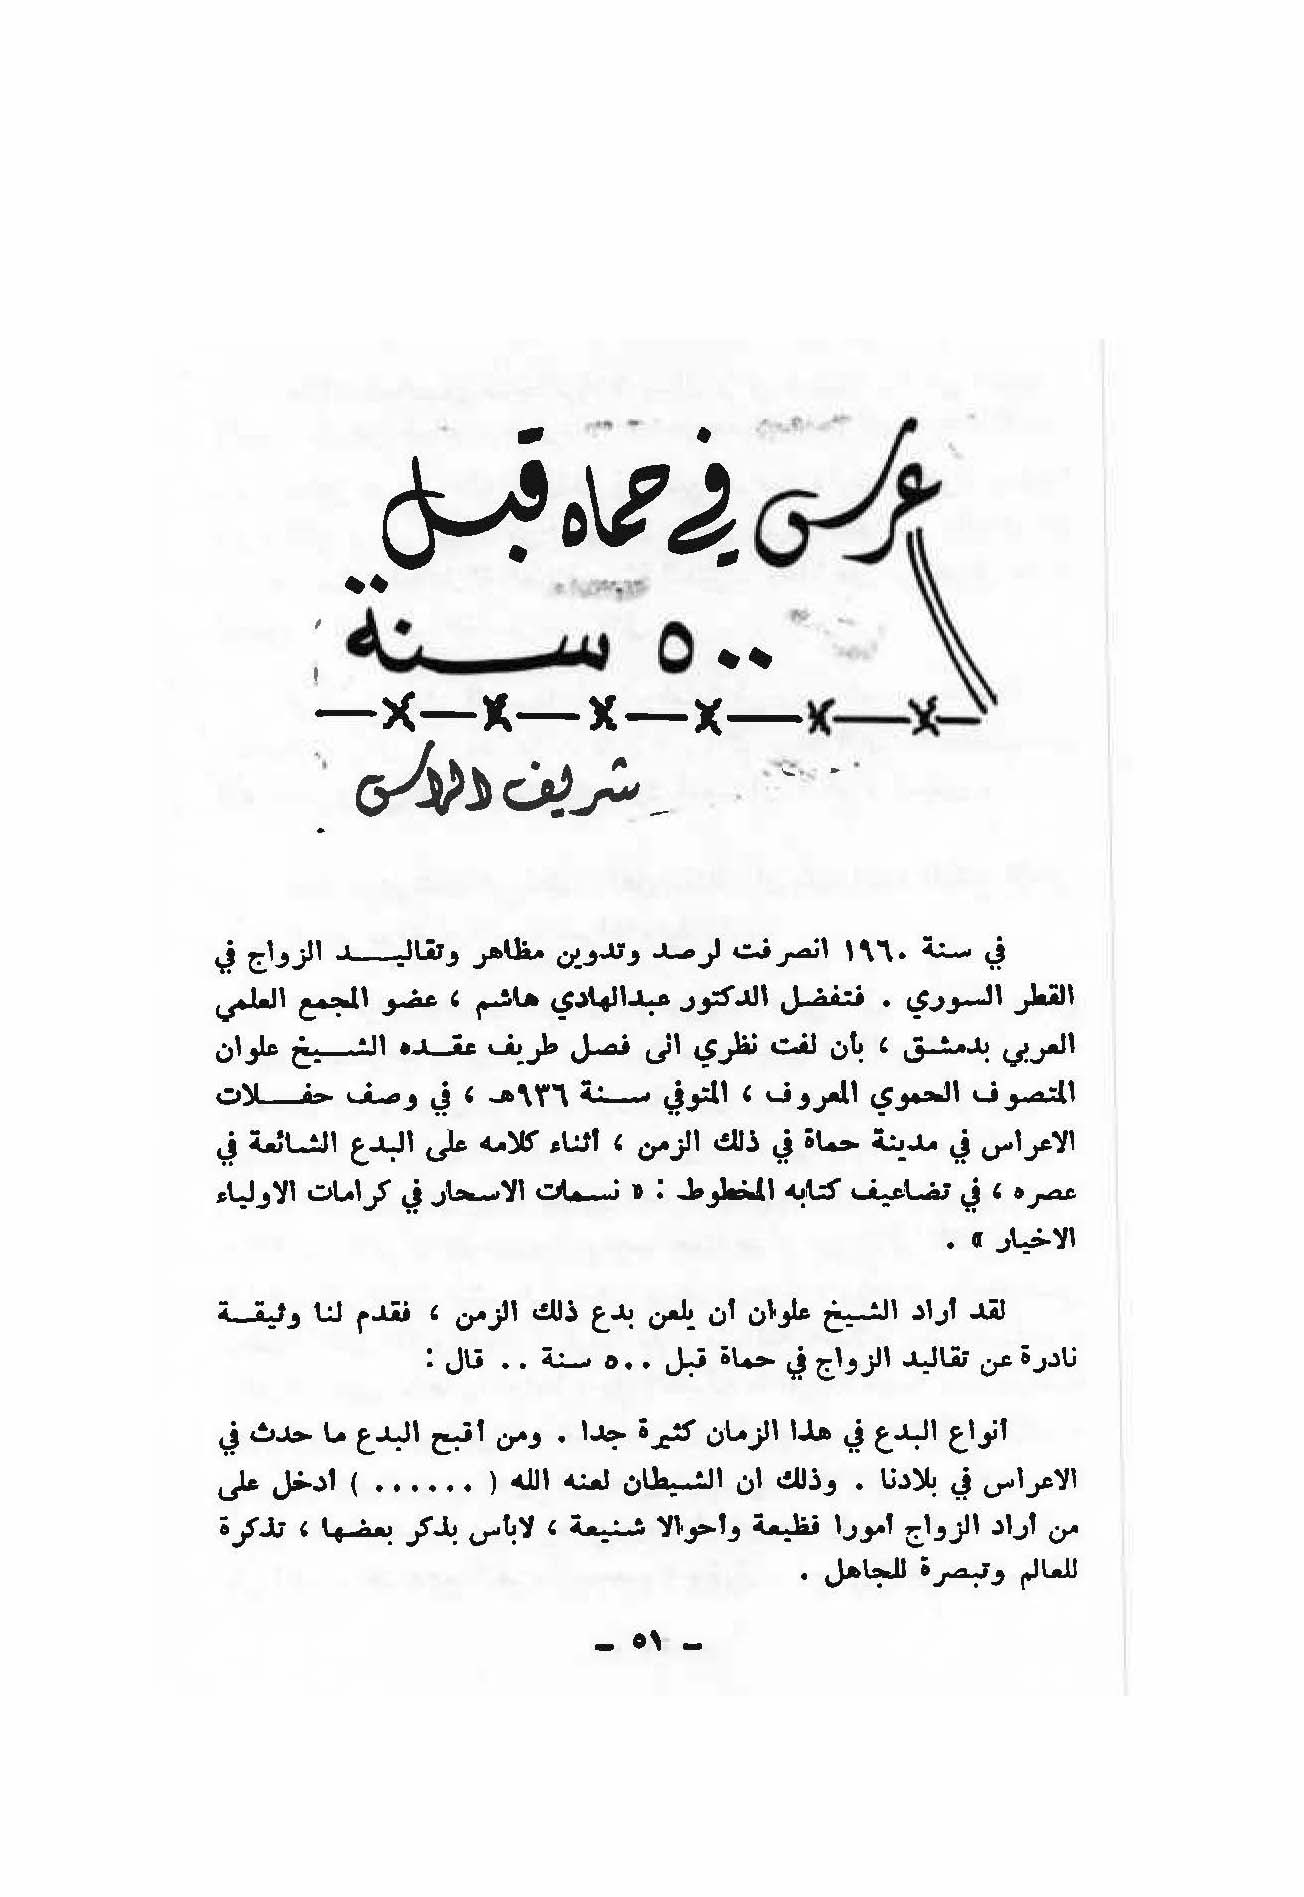 عرس في حماه قبل
٥٠٠ سنة
شريف الراس
في سنة ١٩٦٠ انصرفت لرصد وتدوين مظاهر وتقاليد الزواج في
القطر السوري . فتفضل الدكتور عبدالهادي هاشم ، عضو المجمع العلمي
العربي بدمشق ، بأن لفت نظري الى فصل طريف عقده الشيخ علوان
المتصوف الحموي المعروف ، المتوفي سنة ٩٣٦هـ ، في وصف حفلات
الاعراس في مدينة حماة في ذلك الزمن ، أثناء كلامه على البدع الشائعة في
عصره ، في تضاعيف كتابه المخطوط : « نسمات الاسحار في كرامات الاولياء
الاخيار » .
لقد أراد الشيخ علوان أن يلعن بدع ذلك الزمن ، فقدم لنا وثيقة
نادرة عن تقاليد الزواج في حماة قبل ٥٠٠ سنة .. قال :
أنواع البدع في هذا الزمان كثيرة جدا . ومن أقبح البدع ما حدث في
الاعراس في بلادنا . وذلك ان الشيطان لعنه الله ( ...... ) أدخل على
من أراد الزواج أمورا فظيعة وأحوالا شنيعة ، لابأس بذكر بعضها ، تذكرة
للعالم وتبصرة للجاهل .
— ٥١ —